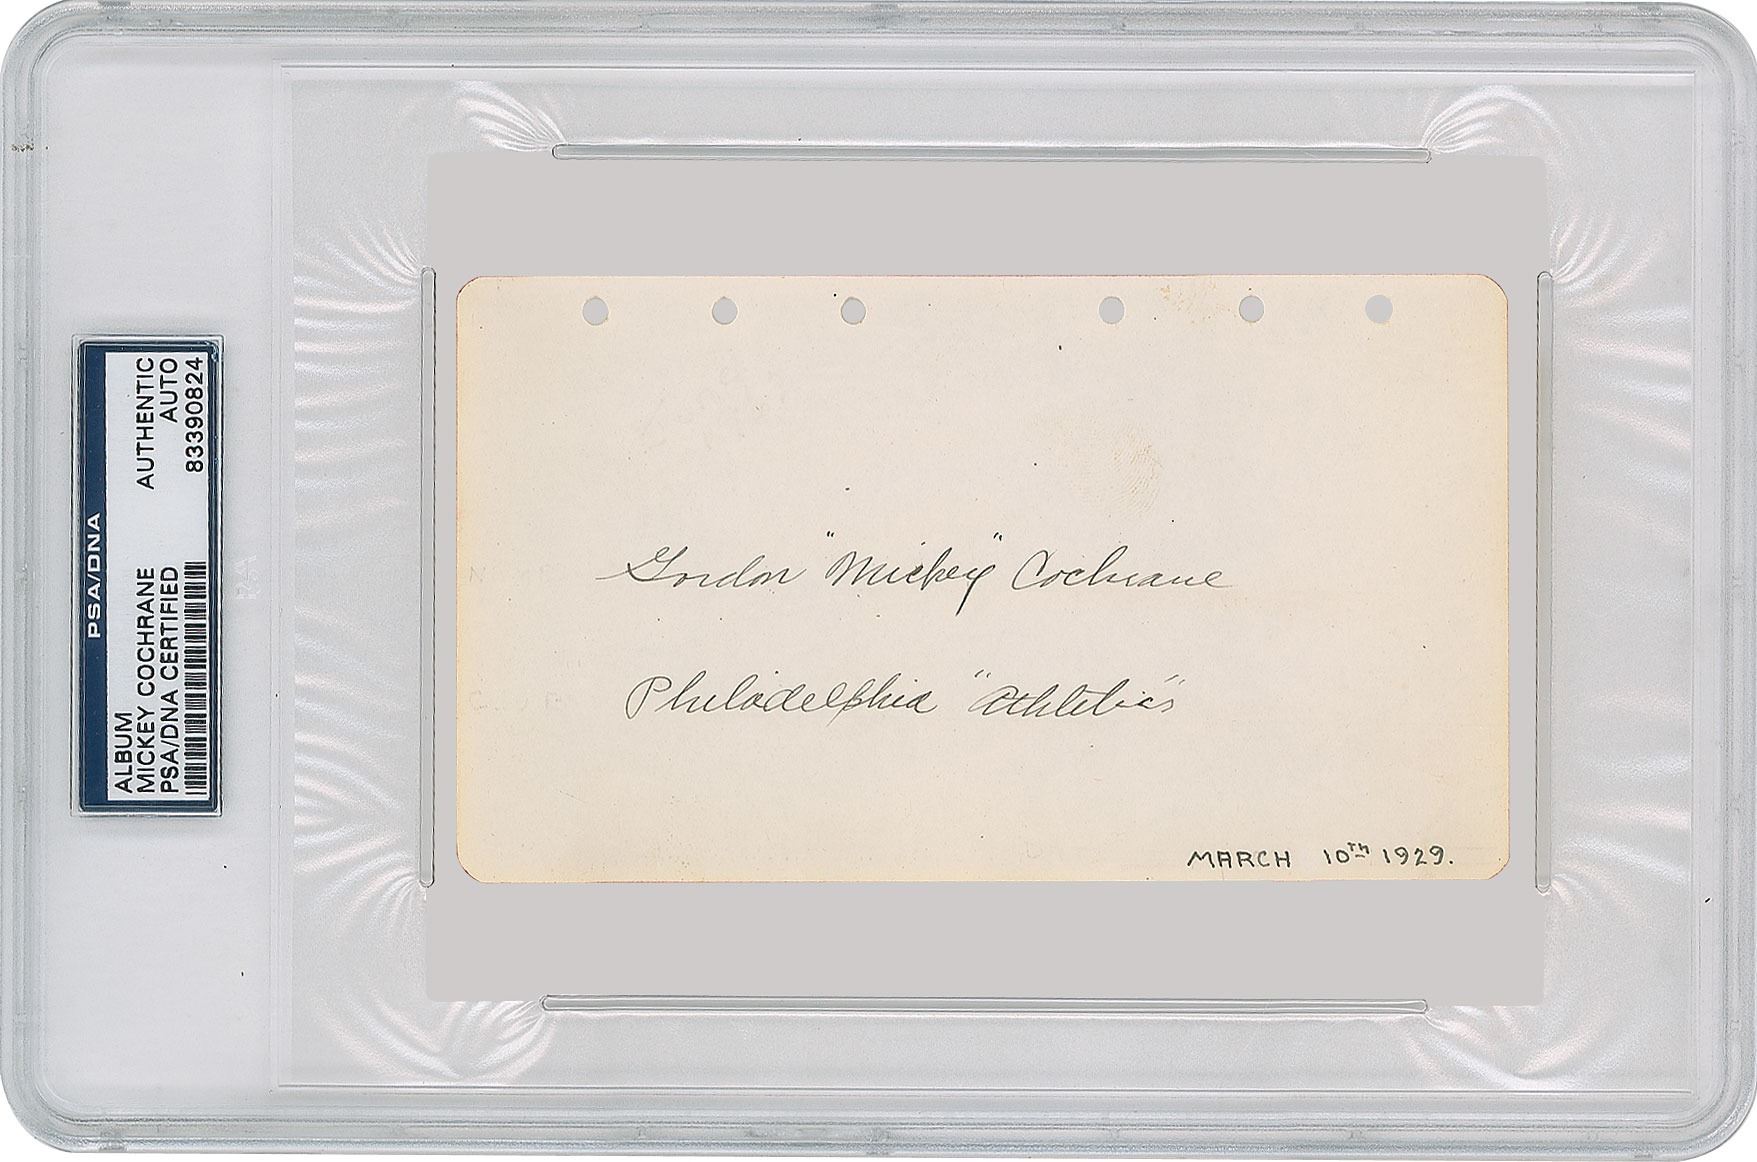 PSA/DNA
ALBUM
MICKEY COCHRANE AUTHENTIC
PSA/DNA CERTIFIED AUTO
83390824
Gordon "Mickey" Cochrane
Philadelphia "Athletics"
MARCH 10TH 1929.